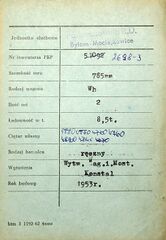 Jednostka służbowa
Bytom-Maciejkowice
Nr inwentarza PKP 5.1092 2698-3
Szerokość toru 785mm
Rodzaj wagonu Wh
Ilość osi 2
Ładowność w t. 8,5t.
Ciężar własny
Rodzaj hamulca ręczny
Wytwórnia Wytw. Wag.i Most.
Konstal
Rok budowy 1953r.